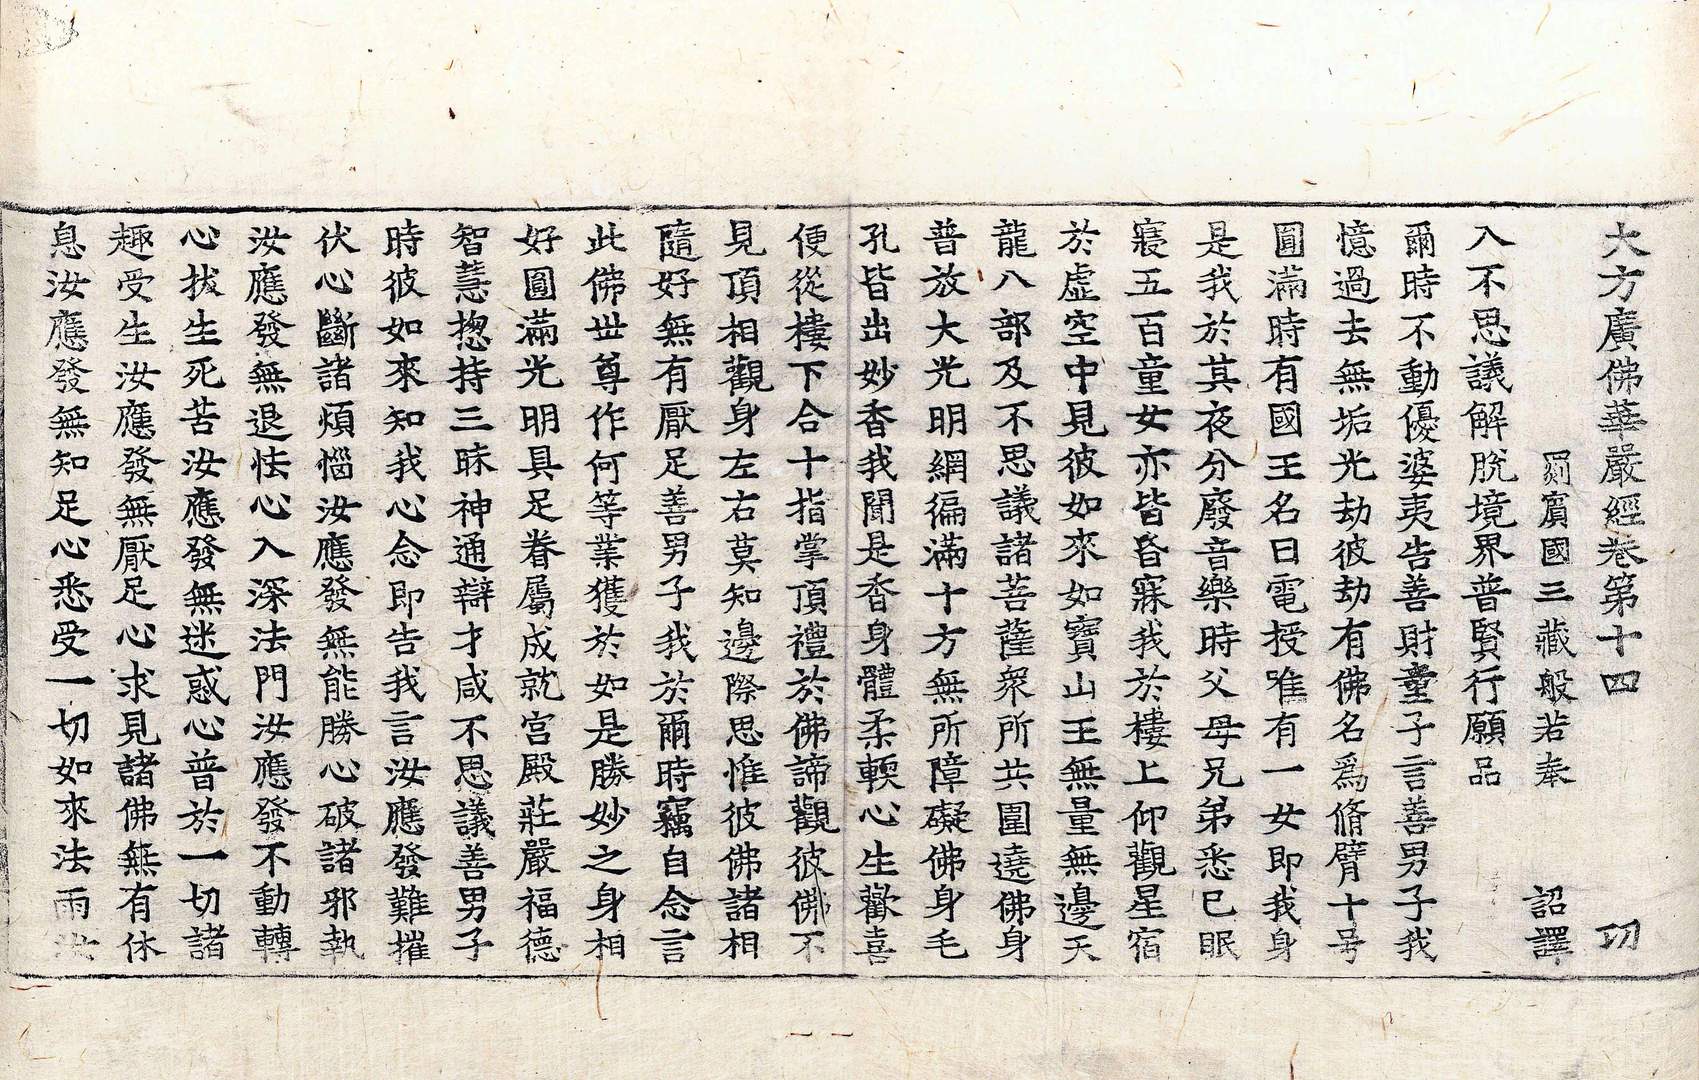 大方廣佛華嚴經卷第十四 㓛
罽賓國三藏般若奉 詔譯
入不思議解脫境界普賢行願品
爾時不動優婆夷告善財童子言善男子我
憶過去無垢光劫彼劫有佛名爲脩臂十号
圓滿時有國王名曰電授唯有一女即我身
是我於其夜分廢音樂時父母兄弟悉已眠
寢五百童女亦皆昏寐我於樓上仰觀星宿
於虛空中見彼如來如寶山王無量無邊天
龍八部及不思議諸菩薩衆所共圍遶佛身
普放大光明網徧滿十方無所障礙佛身毛
孔皆出妙香我聞是香身體柔輭心生歡喜
便從樓下合十指掌頂禮於佛諦觀彼佛不
見頂相觀身左右莫知邊際思惟彼佛諸相
隨好無有厭足善男子我於爾時竊自念言
此佛世尊作何等業獲於如是勝妙之身相
好圓滿光明具足眷屬成就宮殿莊嚴福德
智慧揔持三昧神通辯才咸不思議善男子
時彼如來知我心念即告我言汝應發難摧
伏心斷諸煩惱汝應發無能勝心破諸邪執
汝應發無退怯心入深法門汝應發不動轉
心拔生死苦汝應發無迷惑心普於一切諸
趣受生汝應發無厭足心求見諸佛無有休
息汝應發無知足心悉受一切如來法雨汝